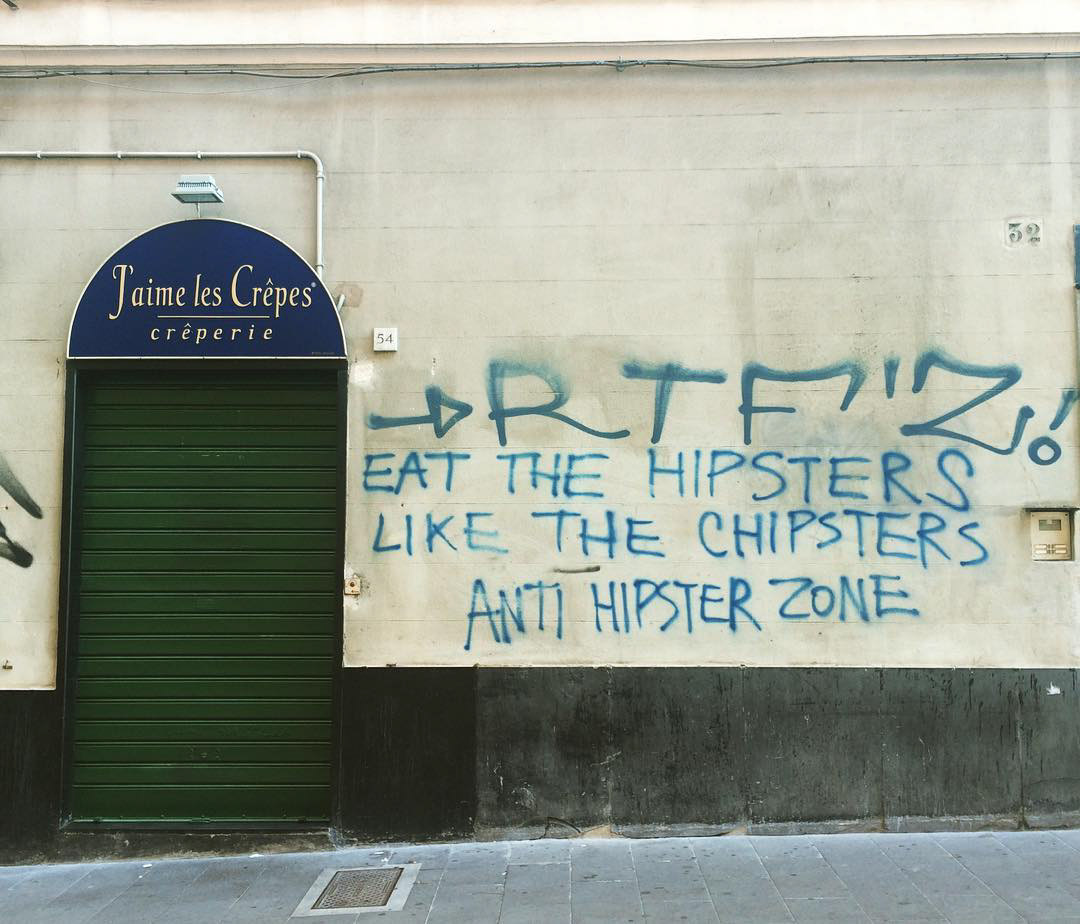 J'aime les Crêpes
crêperie
54
32
RTF'Z!
EAT THE HIPSTERS
LIKE THE CHIPSTERS
ANTI HIPSTER ZONE